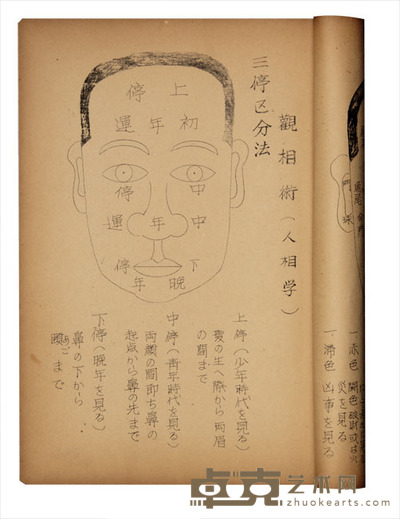 一 赤色
災を見る
一 滞色 凶事を見る
觀相術(人相学)
三停区分法
上停
初年運
中停
中年運
下停
晩年
上停(少年時代を見る)
髪の生へ際から両眉
の間まで
中停(青年時代を見る)
両顔の間即ち鼻の
起点から鼻の先まで
下停(晩年を見る)
鼻の下から
頤あごまで
卓克艺术网
zhuokearts.com